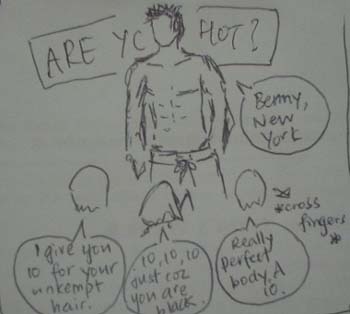 ARE YO HOT?
Benny,
New
York
*cross
fingers*
I give you
10 for your
unkempt
hair.
10, 10, 10
just coz
you are
black.
Really
perfect
body. A
10.